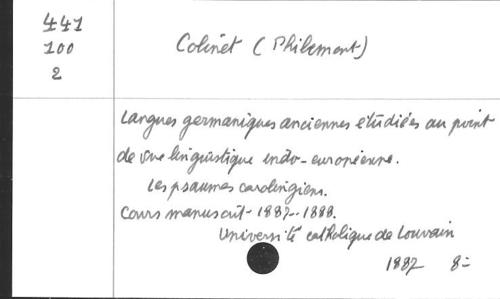 441
100
2
Colinet (Philemont)
Langues germaniques anciennes étudiées au point
de vue linguistique indo-européenne.
Les psaumes carolingiens.
Cours manuscrit - 1887-1888.
Université catholique de Louvain
1887 8=